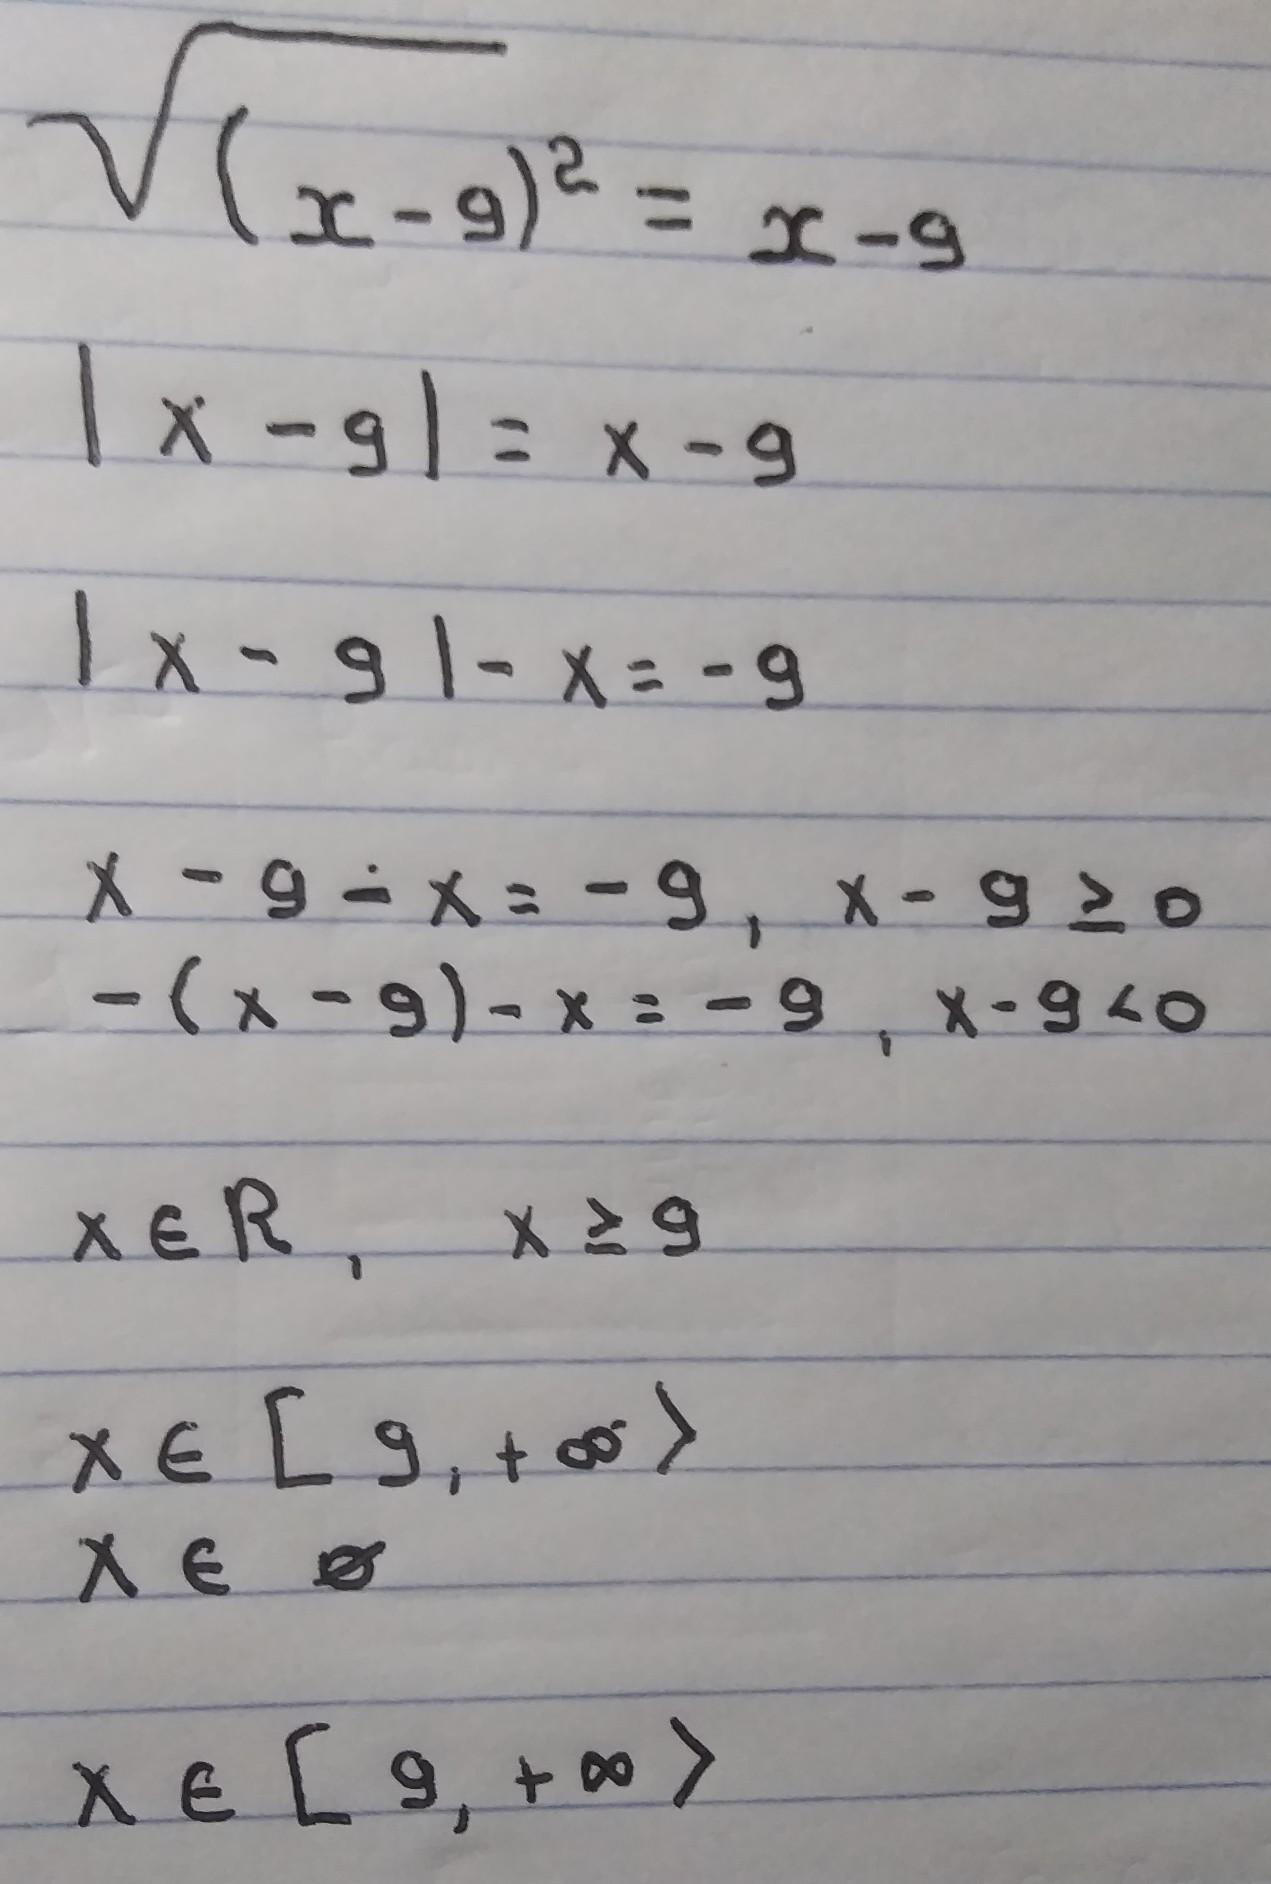 √(x-9)² = x-9
|x-9| = x-9
|x-9|-x=-9
x-9-x=-9, x-9≥0
-(x-9)-x=-9, x-9<0
x∈R, x≥9
x∈[9,+∞⟩
x∈ø
x∈[9,+∞⟩